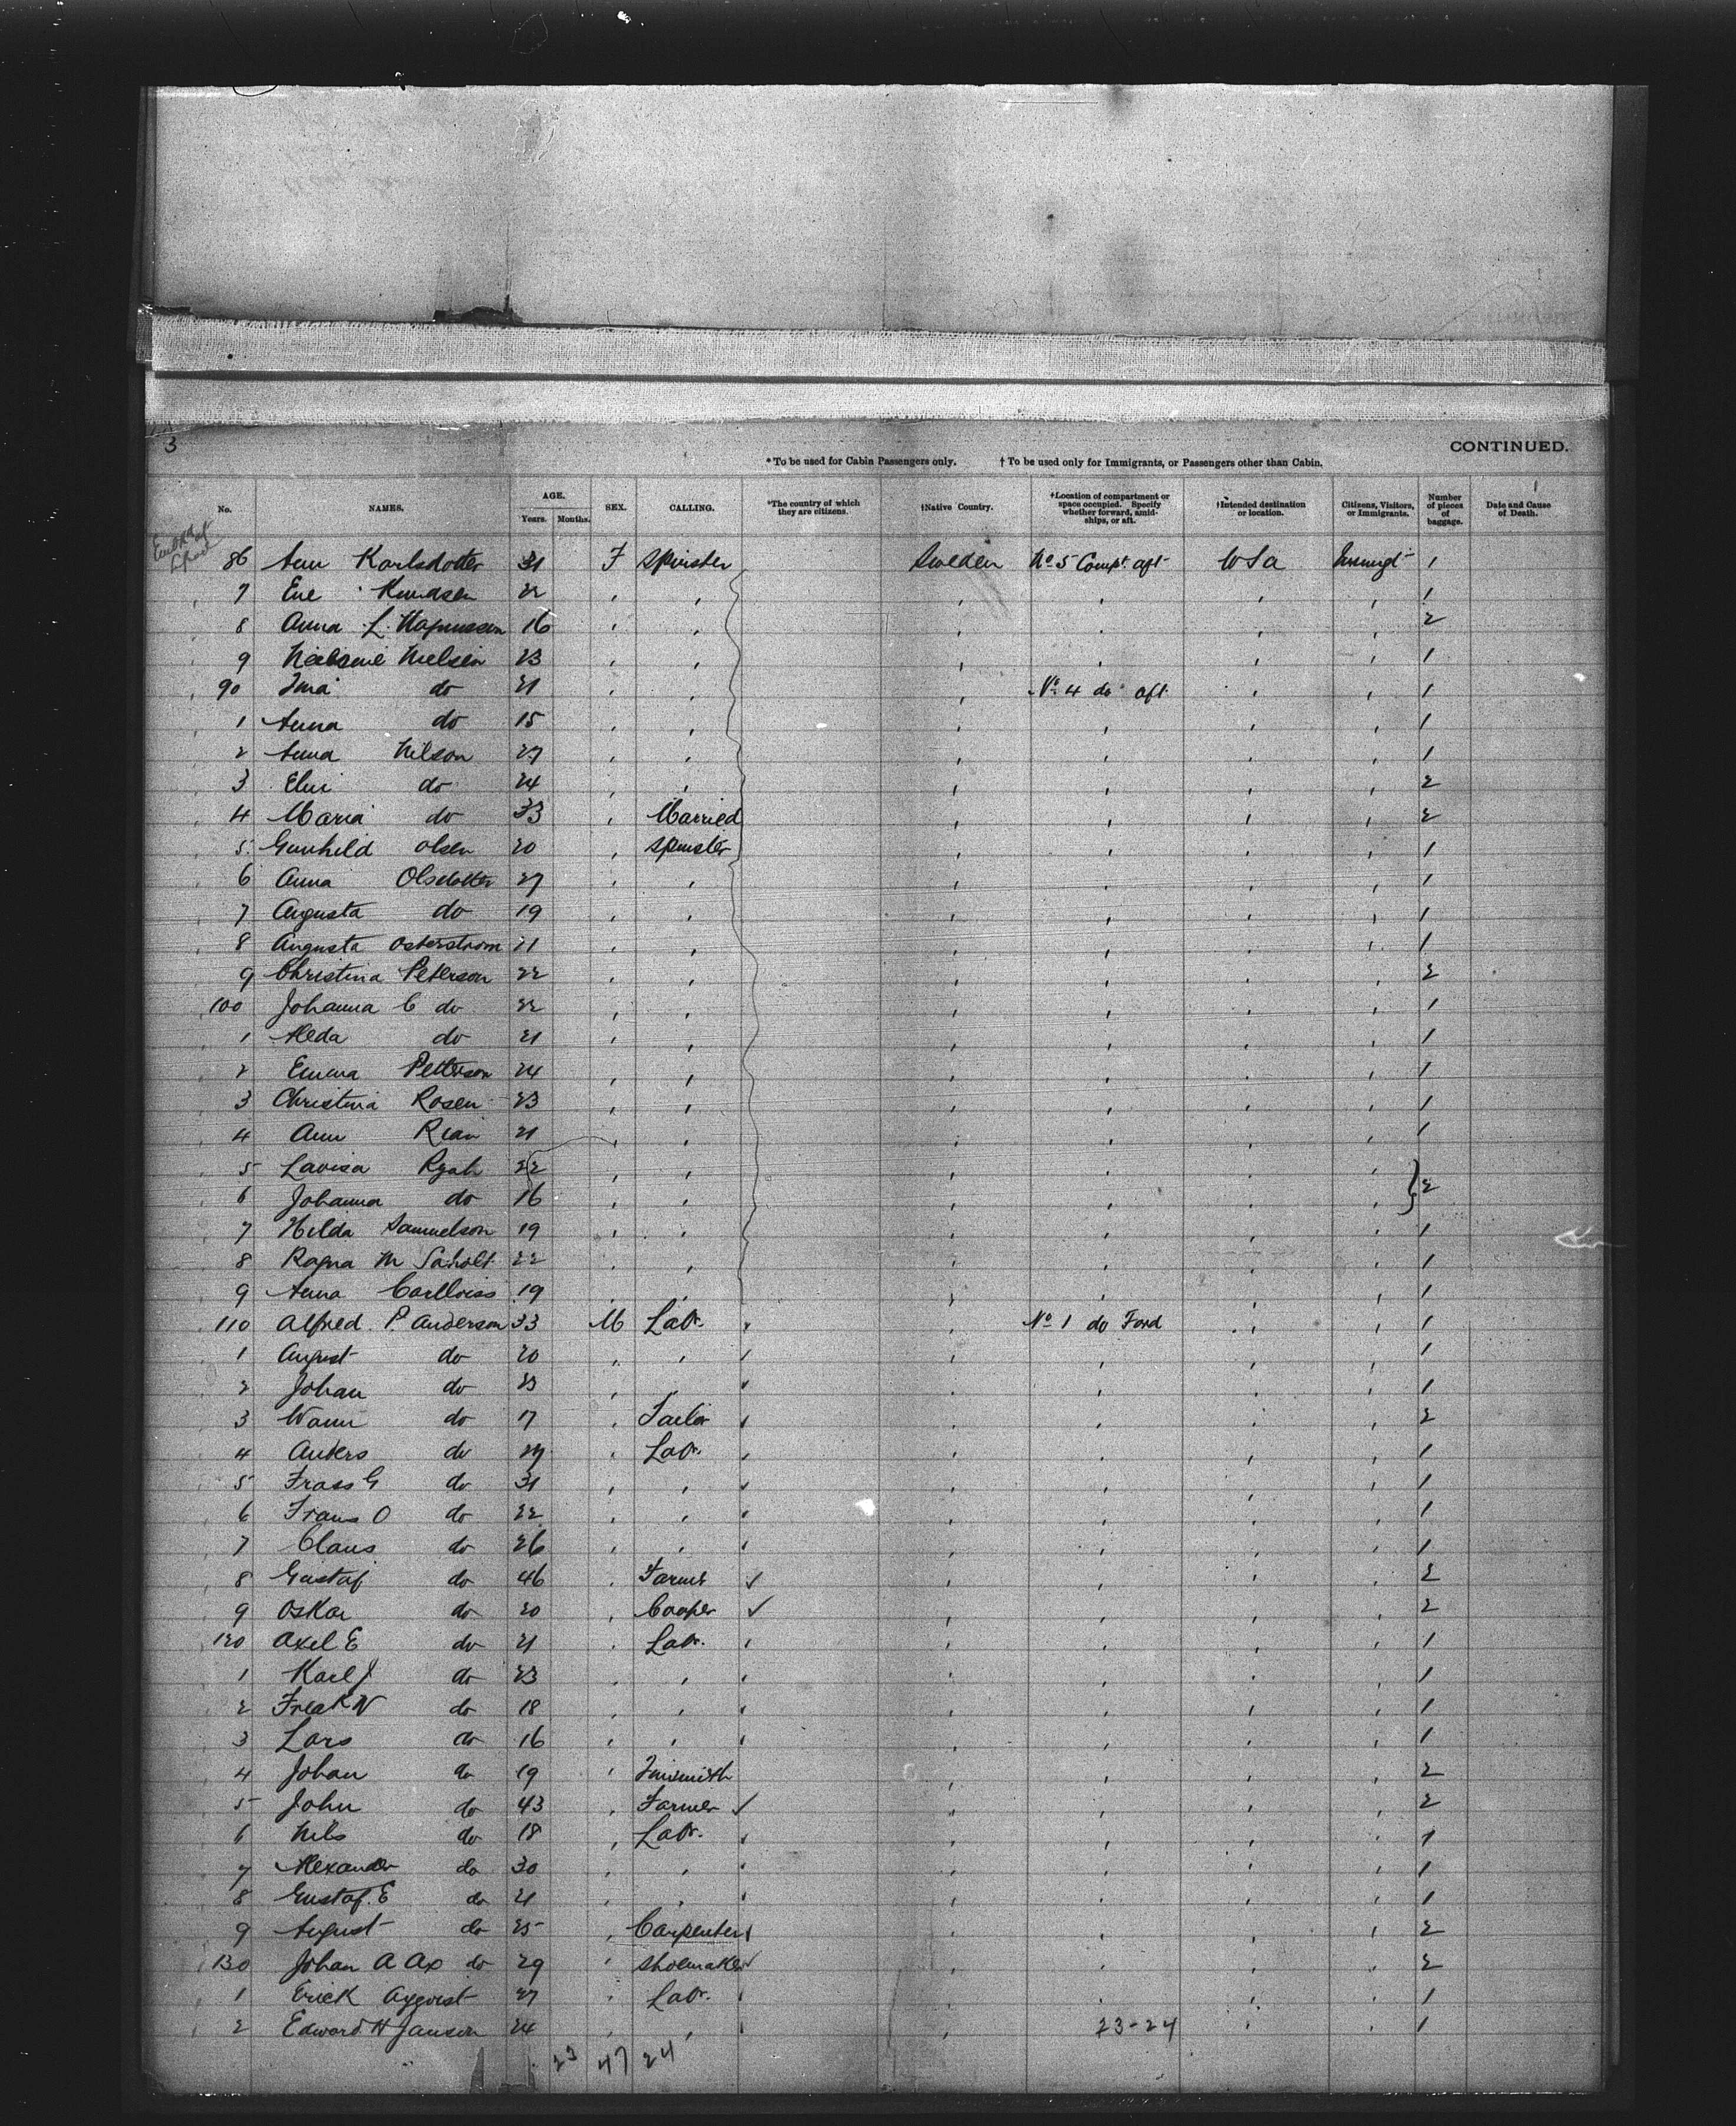 3
CONTINUED.
*To be used for Cabin Passengers only. †To be used only for Immigrants, or Passengers other than Cabin.
No. NAMES. AGE. Years. Months. SEX. CALLING. *The country of which they are citizens. †Native Country. †Location of compartment or space occupied. Specify whether forward, amidships, or aft. †Intended destination or location. Citizens, Visitors, or Immigrants. Number of pieces of baggage. Date and Cause of Death.
86 Ann Karlsdotter F Spinster Sweden No 5 Compt aft USa 1
7 Eve Knudsen 22 1
8 Anna L. Magnusson 16 2
9 Nielsen 23 1
90 do 21 No 4 do aft 1
1 Anna do 15 1
2 Anna Nilson 27 1
3 do 24 2
4 Maria do 33 Married 2
5 Gunhild Olsen 20 Spinster 1
6 Anna Olsdotter 27 1
7 Augusta do 19 1
8 Augusta Osterstrom 21 1
9 Christina Peterson 22 2
100 Johanna C do 22 1
1 Aleda do 21 1
2 Emma Petterson 24 1
3 Christina Rosen 23 1
4 Ann 21 1
5 Lavisa 22
6 Johanna do 16 2
7 Hilda Samuelson 19 1
8 Ragna M 22 1
9 Anna 19 1
110 Alfred P Anderson 33 M Labr. No 1 do Ford 1
1 August do 20 1
2 Johan do 23 1
3 do 17 Tailor 2
4 Anders do Labr. 1
5 G do 1
6 Frans O do 22 1
7 Claus do 26 1
8 Gustaf do 46 Farmer 2
9 Oskar do 20 Cooper 2
120 Axel E do 21 Labr. 1
1 Karl J do 23 1
2 do 18 1
3 Lars do 16 1
4 Johan do 19 Tinsmith 2
5 John do 43 Farmer 2
6 Nils do 18 Labr. 1
7 Alexander do 30 1
8 Gustaf. E do 21 1
9 August do 25 Carpenter 2
130 Johan A Ax do 29 Shoemaker 2
1 Erick 27 Labr. 1
2 Edward H Janson 24 23-24 1
23 47 24